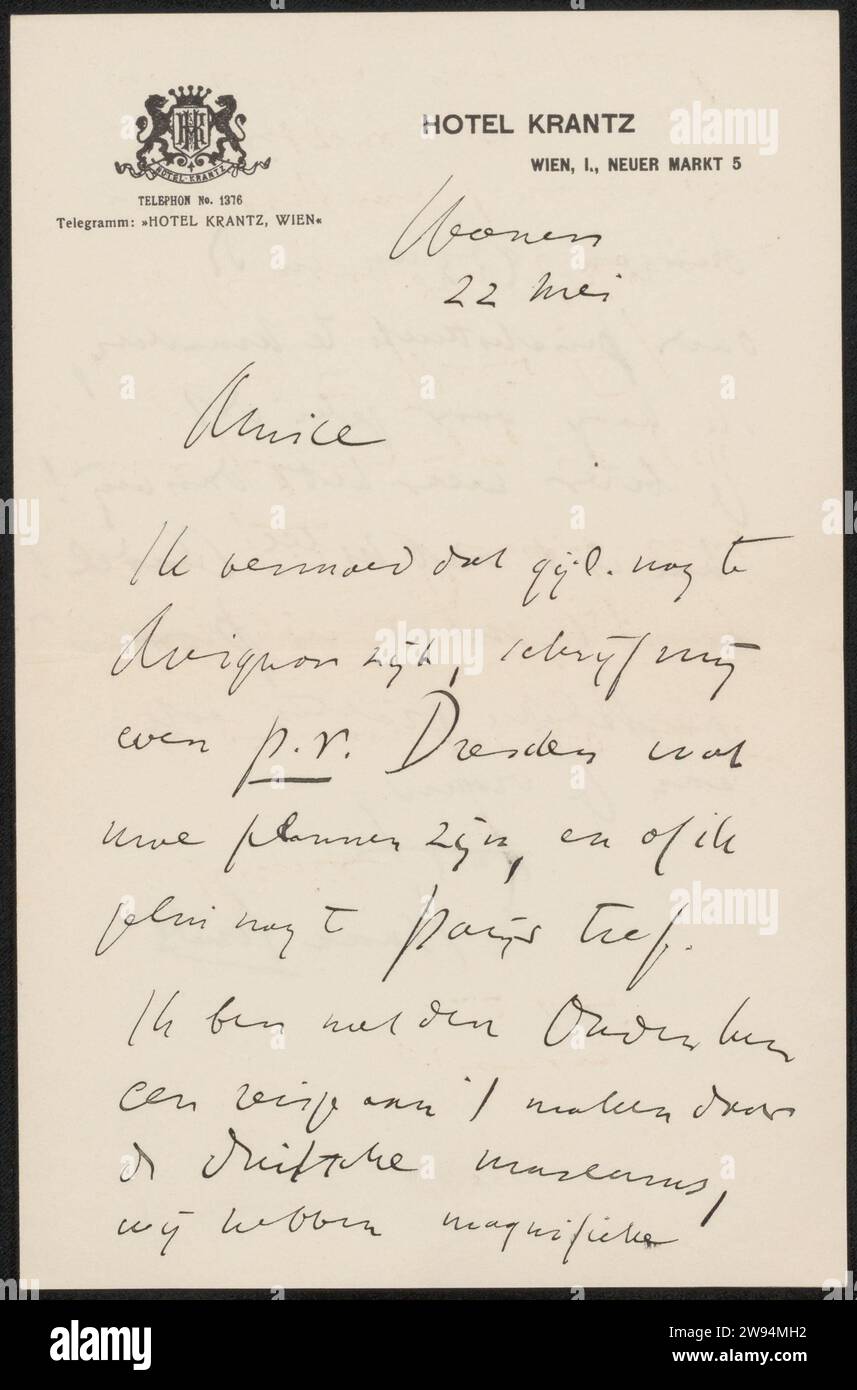 HOTEL KRANTZ
WIEN, I., NEUER MARKT 5
HOTEL-KRANTZ
TELEPHON No. 1376
Telegramm: »HOTEL KRANTZ, WIEN«
Weenen
22 Mei
Amice
Ik vermoed dat gijl. nog te
Avignon zijt, schrijf mij
even p.r. Dresden wat
uwe plannen zijn, en of ik
jelui nog t Parijs tref.
Ik ben met den Ouden heer
een reisje aan 't maken door
de duitsche museums,
wij hebben magnifieke
alamy
Image ID: 2W94MH2
www.alamy.com